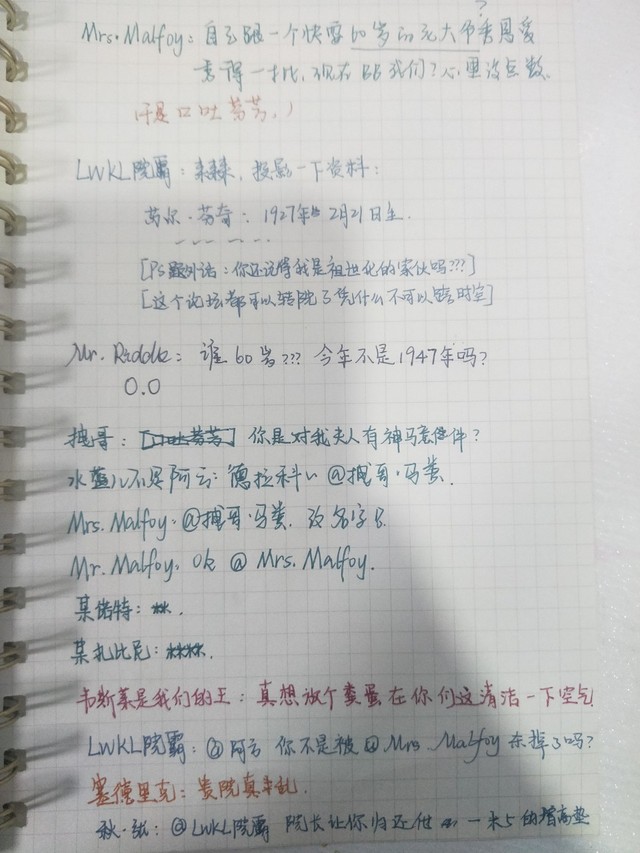 ?
Mrs. Malfoy: 自己跟一个快要60岁的老大爷秀恩爱
秀得一批, 现在BB我们? 心里没点数.
(于是口吐芬芳.)
LWKL院霸: 来来来, 投影一下资料:
芬奇: 1927年 2月21日生.
[Ps题外话: 你还记得我是祖世代的家伙吗???]
[这个论坛都可以转院了凭什么不可以跨时空]
Mr. Riddle: 谁60岁??? 今年不是1947年吗?
O.O
拽哥: [口吐芬芳] 你是对我夫人有神马意见?
水蓝儿不是阿云: 德拉科 @拽哥·马粪.
Mrs. Malfoy: @拽哥·马粪. 改名字
Mr. Malfoy: Ok @ Mrs. Malfoy.
某诺特: **.
某扎比尼: ****.
韦斯莱是我们的王: 真想放个粪蛋在你们这清洁一下空气
LWKL院霸: @阿云 你不是被@Mrs. Malfoy 杀掉了吗?
塞德里克: 贵院真来乱.
秋·张: @LWKL院霸 院长让你归还他 一米5的增高垫